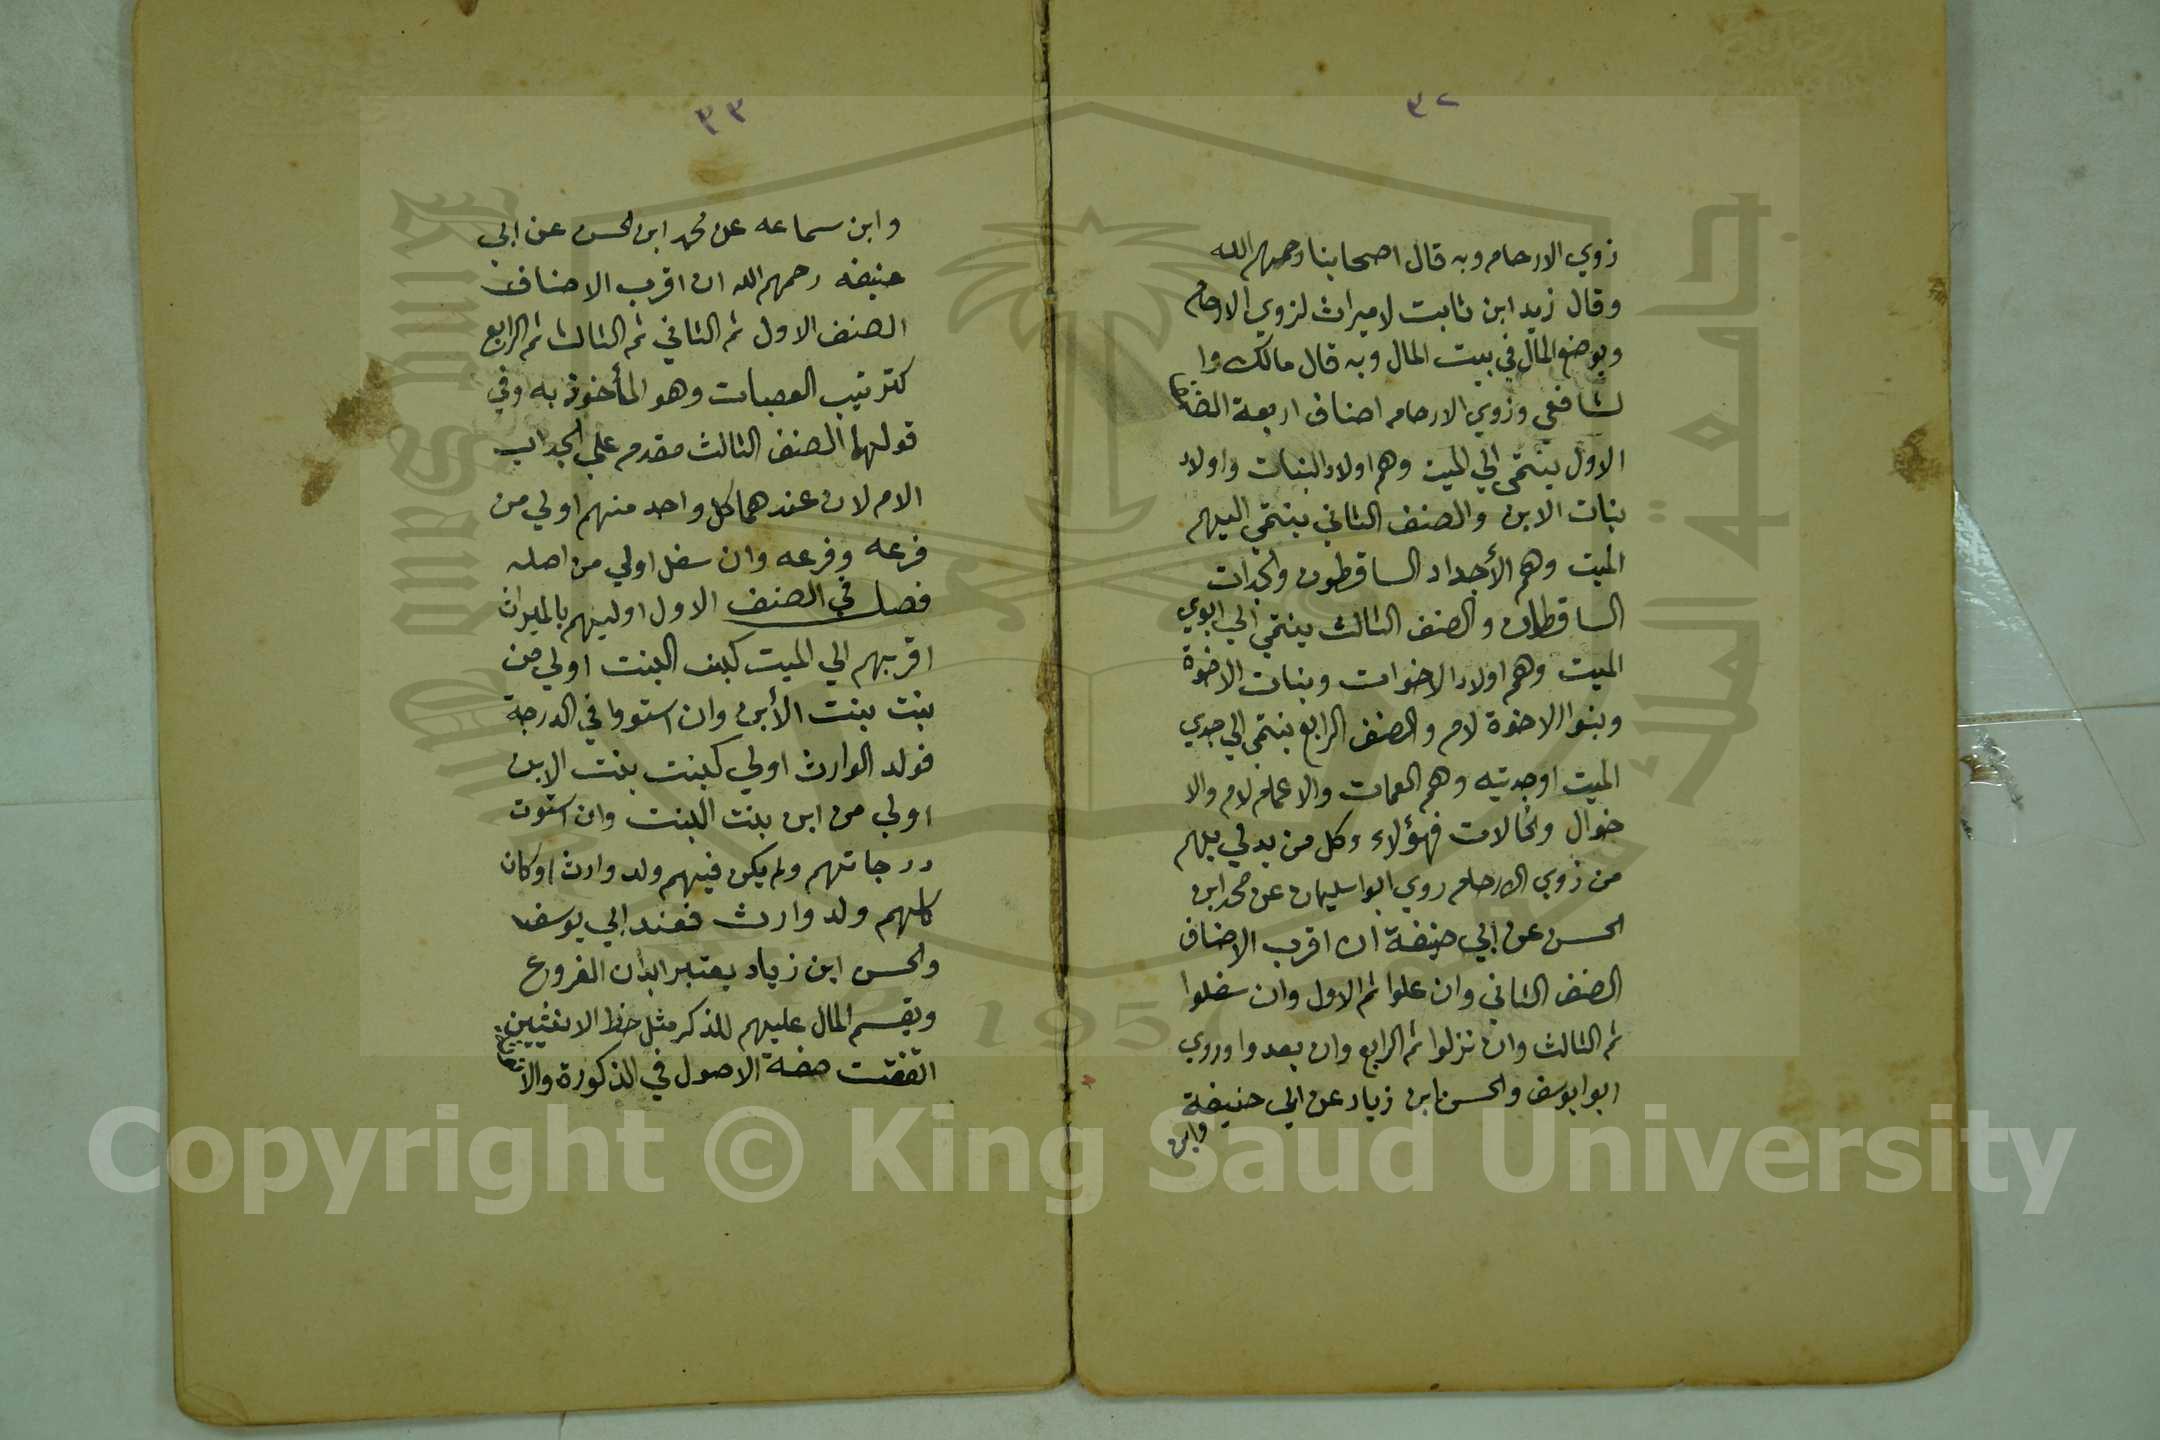 ٣٢
زوي الارحام وبه قال اصحابنا رحمهم الله
وقال زيد ابن ثابت لا ميراث لزوي الارحام
ويوضع المال في بيت المال وبه قال مالك وا
لشافعي وزوي الارحام اصناف اربعة الصنف
الاول ينتمي الي الميت وهم اولاد البنات واولاد
بنات الابن والصنف الثاني ينتمي اليهم
الميت وهم الأجداد الساقطون والجدات
الساقطات والصنف الثالث ينتمي الي ابوي
الميت وهم اولاد الاخوات وبنات الاخوة
وبنوا الاخوة لام والصنف الرابع ينتمي الي جدي
الميت اوجدتيه وهم العمات والاعمام لام والا
خوال والخالات فهؤلاء وكل من يدلي بهم
من زوي الارحام روي ابوا سليمان عن محمد ابن
الحسن عن ابي حنيفة ان اقرب الاصناف
الصنف الثاني وان علوا ثم الاول وان سفلوا
ثم الثالث وان نزلوا ثم الرابع وان بعدوا وروي
ابوا يوسف والحسن ابن زياد عن ابي حنيفة
وابن
٣٣
وابن سماعه عن محمد ابن الحسن عن ابي
حنيفه رحمهم الله ان اقرب الاصناف
الصنف الاول ثم الثاني ثم الثالث ثم الرابع
كترتيب العصبات وهو المأخوذ به وفي
قولهما الصنف الثالث مقدم علي الجد اب
الام لان عندهما كل واحد منهم اولي من
فرعه وفرعه وان سفل اولي من اصله
فصل في الصنف الاول اوليهم بالميراث
اقربهم الي الميت كبنت البنت اولي من
بنت بنت الأبن وان استووا في الدرجة
فولد الوارث اولي كبنت بنت الابن
اولي من ابن بنت البنت وان استوت
درجاتهم ولم يكن فيهم ولد وارث اوكان
كلهم ولد وارث فعند ابي يوسف
والحسن ابن زياد يعتبر ابدان الفروع
ويقسم المال عليهم للذكر مثل حظ الانثيين
اتفقت صفة الاصول في الذكورة والا
Copyright © King Saud University
King Saud University
جامعة الملك سعود
1957